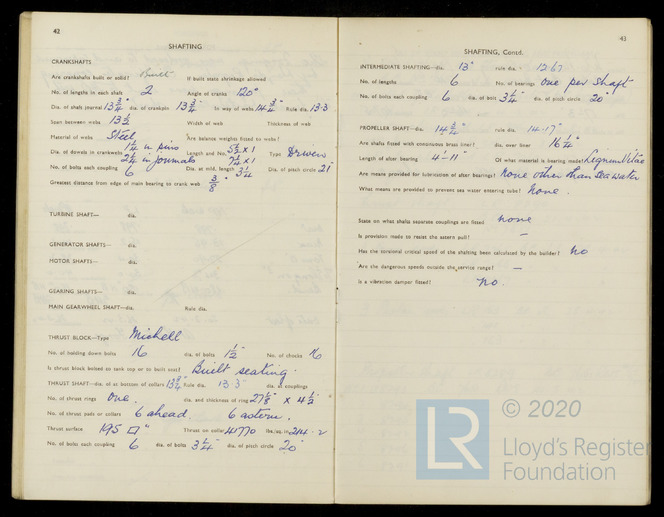 42
SHAFTING
CRANKSHAFTS
Are crankshafts built or solid? Built If built state shrinkage allowed
No. of lengths in each shaft 2 Angle of cranks 120°
Dia. of shaft journal 13 3/4" dia. of crankpin 13 3/4" In way of webs 14 3/4" Rule dia. 13.3
Span between webs 13 1/2 Width of web Thickness of web
Material of webs Steel Are balance weights fitted to webs?
Dia. of dowels in crankwebs 1 1/4 in pins 2 1/4 in journals Length and No. 5 1/2 x 1 7 1/4 x 1 Type Driven
No. of bolts each coupling 6 Dia. at mid. length 3 1/4 Dia. of pitch circle 21
Greatest distance from edge of main bearing to crank web 3/8"
TURBINE SHAFT— dia.
GENERATOR SHAFTS— dia.
MOTOR SHAFTS— dia.
GEARING SHAFTS— dia.
MAIN GEARWHEEL SHAFT—dia. Rule dia.
THRUST BLOCK—Type Michell
No. of holding down bolts 16 dia. of bolts 1 1/2" No. of chocks 16
Is thrust block bolted to tank top or to built seat? Built seating.
THRUST SHAFT—dia. at bottom of collars 13 3/4" Rule dia. 13.3" dia. at couplings
No. of thrust rings One. dia. and thickness of ring 27 7/8" x 4 1/2"
No. of thrust pads or collars 6 ahead. 6 astern.
Thrust surface 195 □" Thrust on collar 41770 lbs./sq. in. 214.2
No. of bolts each coupling 6 dia. of bolts 3 1/4" dia. of pitch circle 20"
43
SHAFTING, Contd.
INTERMEDIATE SHAFTING—dia. 13" rule dia. 12.67
No. of lengths 6 No. of bearings One per shaft
No. of bolts each coupling 6 dia. of bolts 3 1/4" dia. of pitch circle 20"
PROPELLER SHAFT—dia. 14 3/4" rule dia. 14.17"
Are shafts fitted with continuous brass liner? dia. over liner 16 1/4"
Length of after bearing 4'-11" Of what material is bearing made? Lignum Vitae
Are means provided for lubrication of after bearings? None other than sea water
What means are provided to prevent sea water entering tube? None.
State on what shafts separate couplings are fitted none
Is provision made to resist the astern pull? —
Has the torsional critical speed of the shafting been calculated by the builder? No
Are the dangerous speeds outside the service range? —
Is a vibration damper fitted? No.
LR © 2020
Lloyd's Register
Foundation